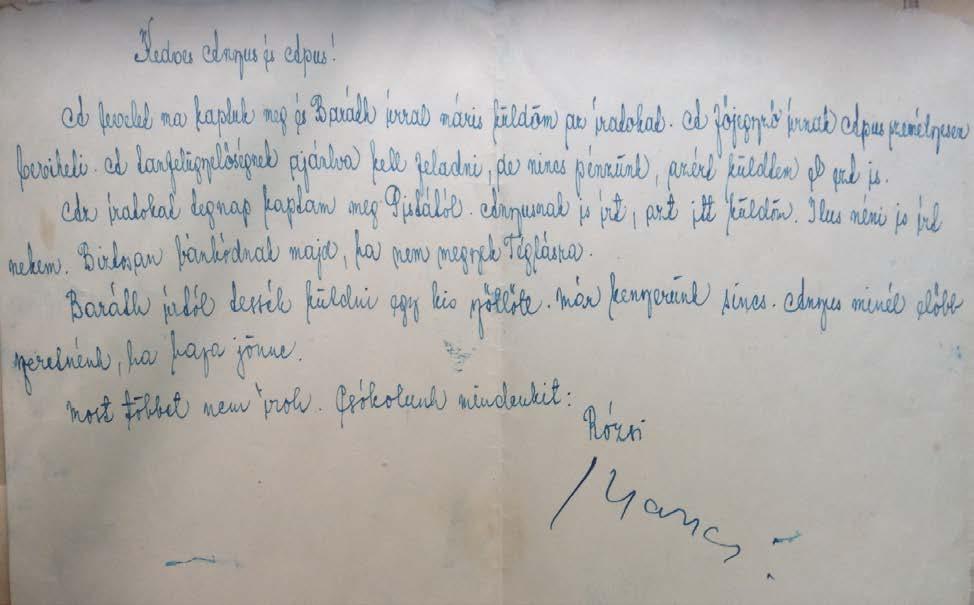 Kedves Anyus és Apus!
A levelet ma kaptuk meg és Baráth úrral máris küldöm az iratokat. A főjegyző úrnak Apus személyesen
beviheti. A tanfelügyelőségnek ajánlva kell feladni, de nincs pénzünk, azért küldtem el ezt is.
Az iratokat tegnap kaptam meg Pistától. Anyusnak is írt, azt itt küldöm. Ilus néni is írt
nekem. Biztosan bánkódnak majd, ha nem megyek Téglásra.
Baráth úrtól tessék küldeni egy kis. Már kenyerünk sincs. Anyus minél előbb
szeretnénk, ha haza jönne.
Most többet nem írok. Csókolunk mindenkit:
Rózsi
Mancs